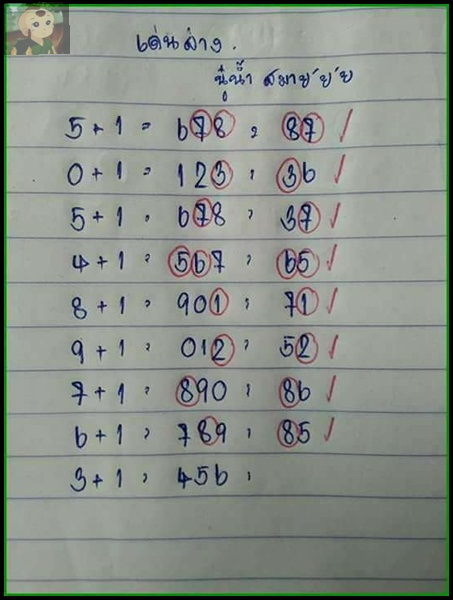 เด่นล่าง.
นู๋น้ำ สมายย์ย์ย
5+1 = 678 = 87 /
0+1 = 123 = 36 /
5+1 = 678 = 37 /
4+1 = 567 = 65 /
8+1 = 901 = 71 /
9+1 = 012 = 52 /
7+1 = 890 = 86 /
6+1 = 789 = 85 /
3+1 = 456 =